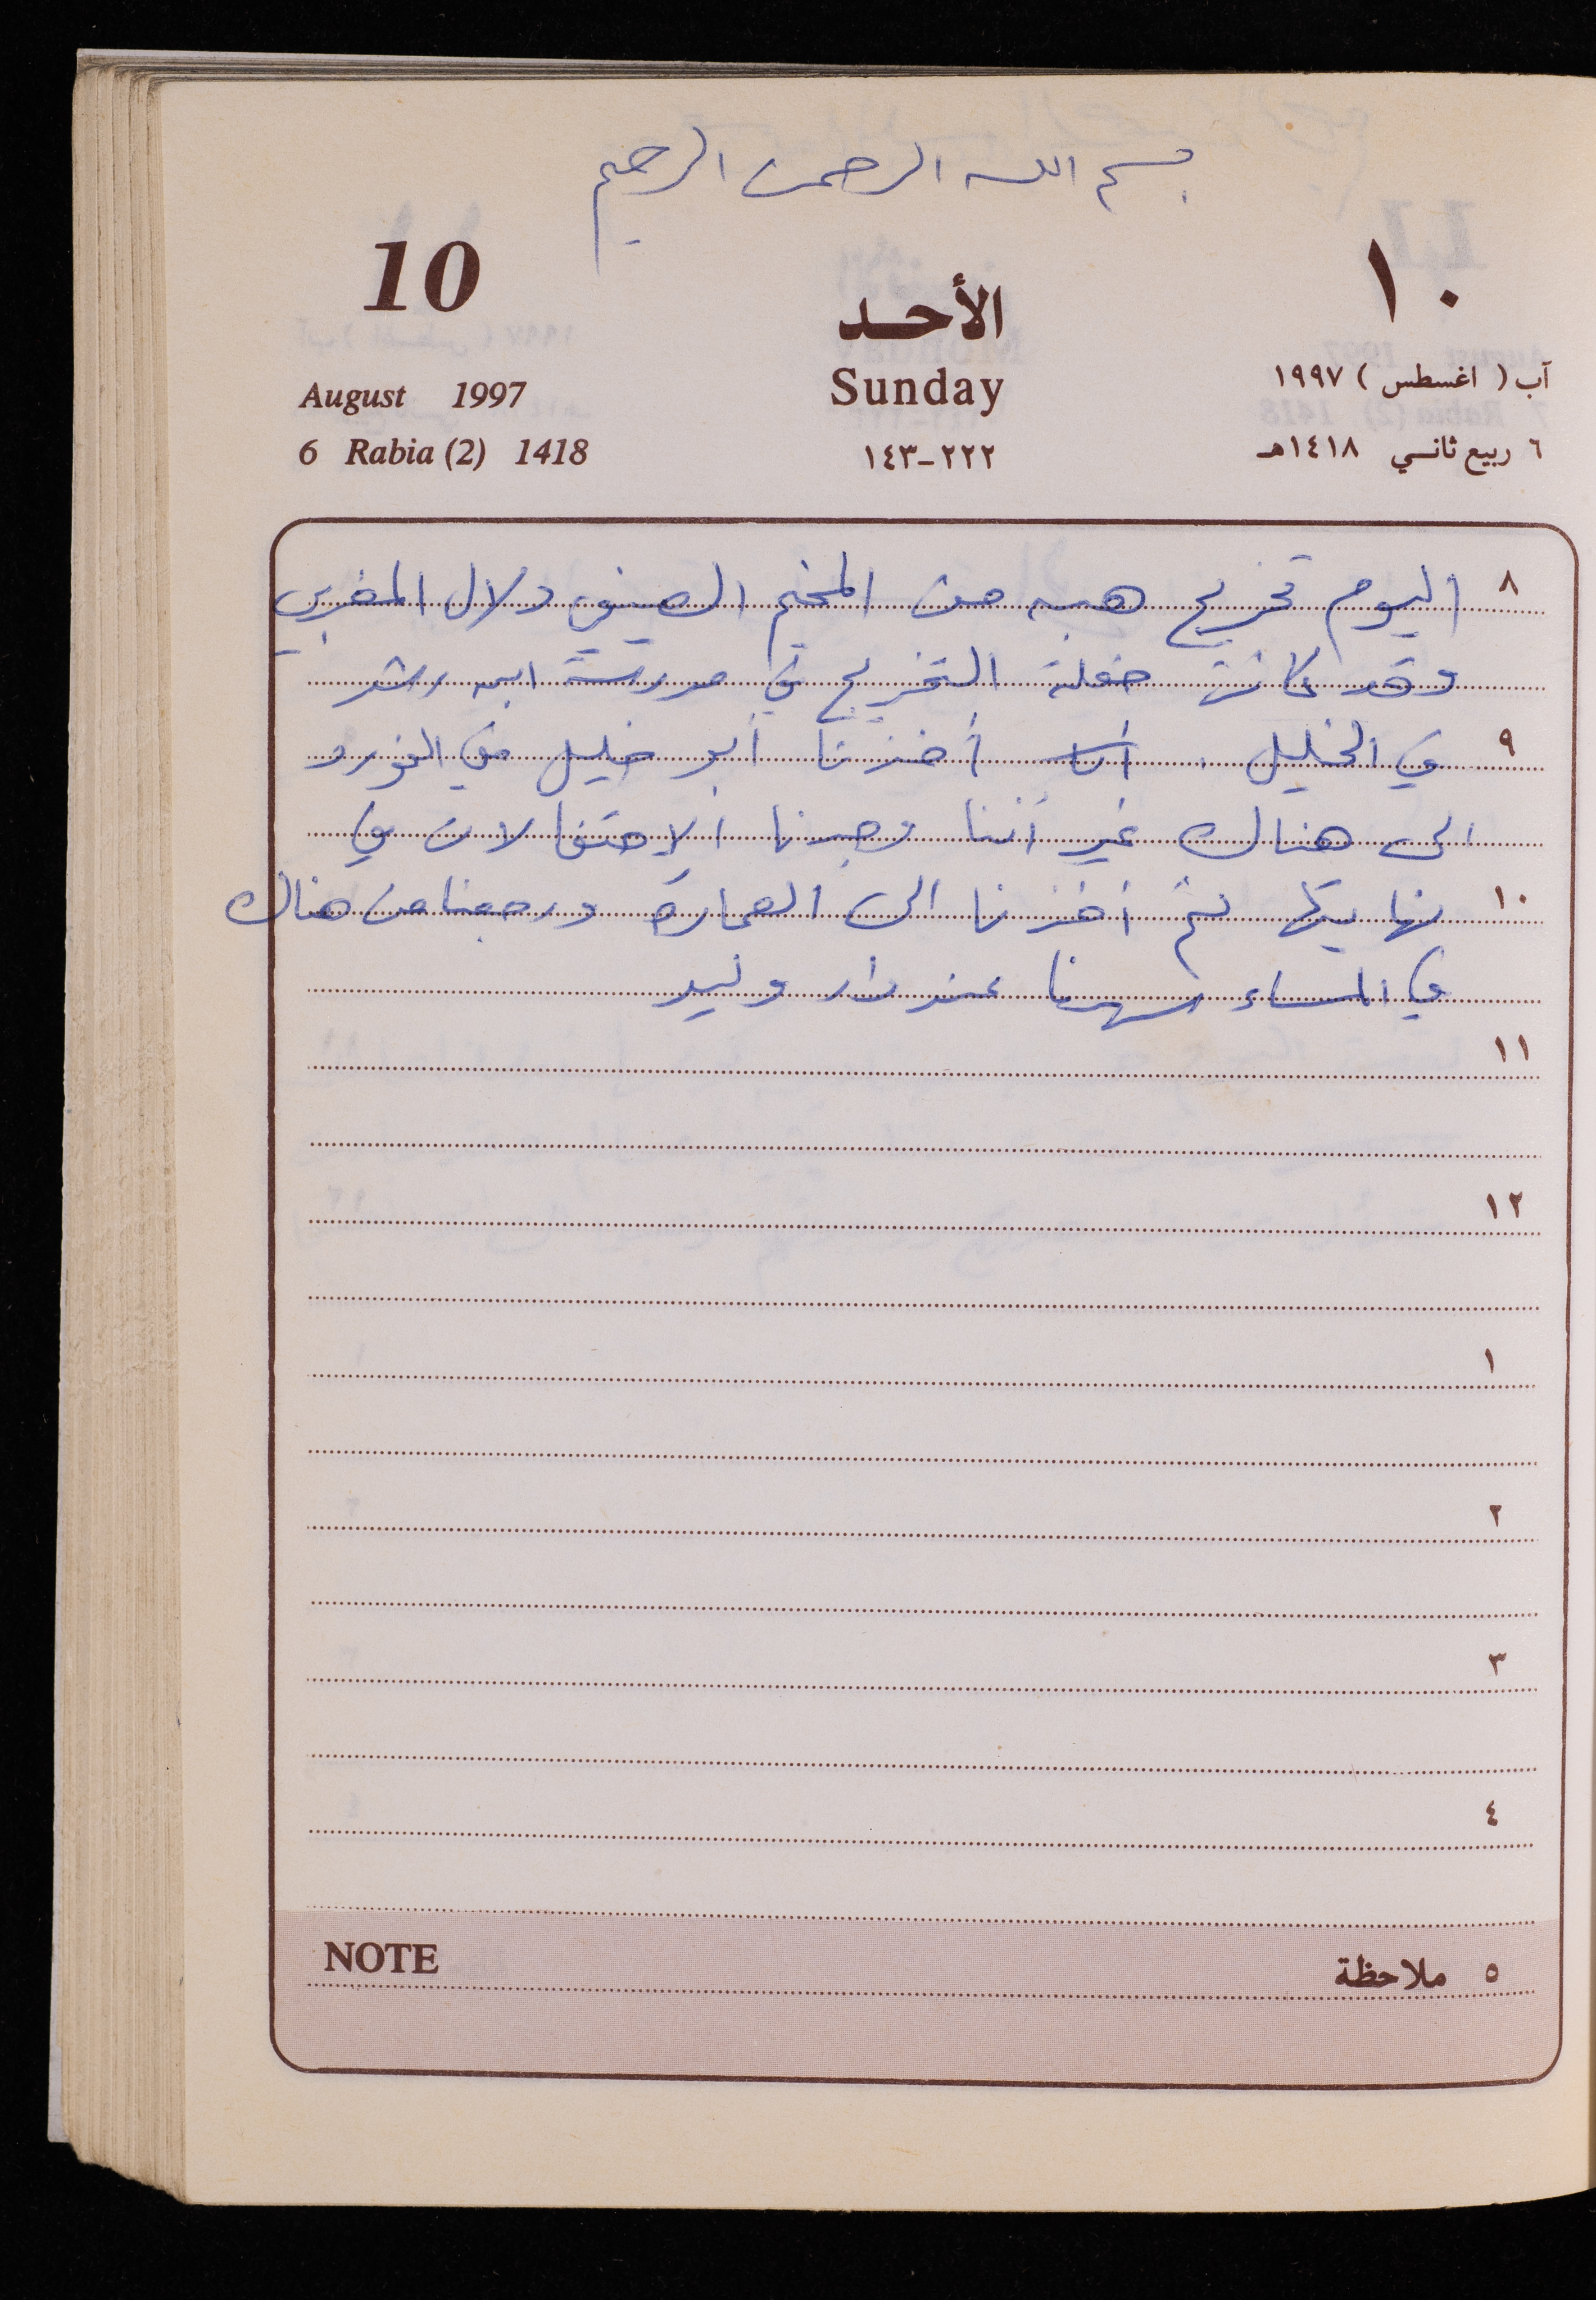 بسم الله الرحمن الرحيم
10 الأحد ١٠
August 1997 Sunday آب ( اغسطس ) ١٩٩٧
6 Rabia (2) 1418 ٢٢٢-١٤٣ ٦ ربيع ثاني ١٤١٨هـ
٨ اليوم تخريج هبه من المخيم الصيفي دلال المغربي
وقد كانت حفلة التخريج في مدرسة ابن رشد
٩ في الخليل . أخذنا أبو خليل في الفورد
الى هناك غير أننا وجدنا الإحتفالات في
١٠ نهايتها ثم أخذنا الى العمارة ورجعنا من هناك
في المساء سهرنا عند دار وليد
١١
١٢
١
٢
٣
٤
NOTE ٥ ملاحظة